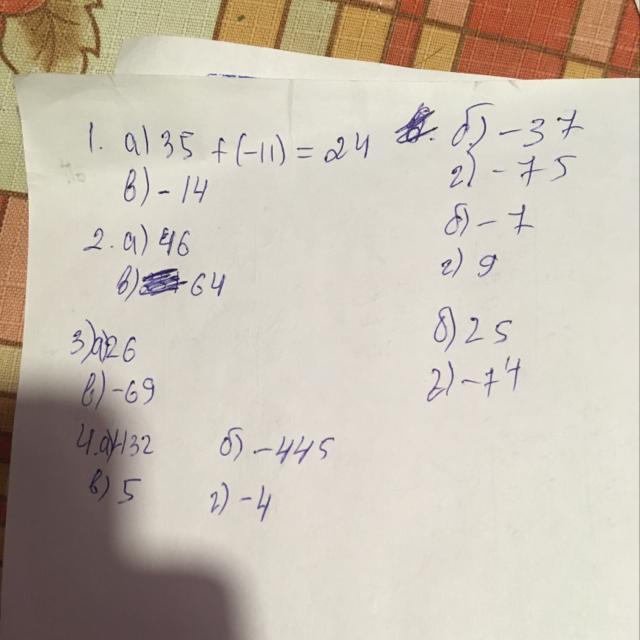 1. а) 35 + (-11) = 24 б) -37
в) -14 г) -75
2. а) 46 б) -7
в) 64 г) 9
3) а) 26 б) 25
в) -69 г) -74
4. а) -132 б) -445
в) 5 г) -4